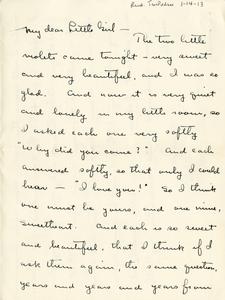 1-14-13
My dear Little Girl —
The two little
violets came tonight — very sweet
and very beautiful, and I was so
glad. And now it is very quiet
and lonely in my little room, so
I asked each one very softly
"Why did you come?" And each
answered softly, so that only I could
hear — "I love you!" So I think
one must be yours, and one mine,
sweetheart. And each is so sweet
and beautiful, that I think if I
ask them again, the same question,
years and years and years from